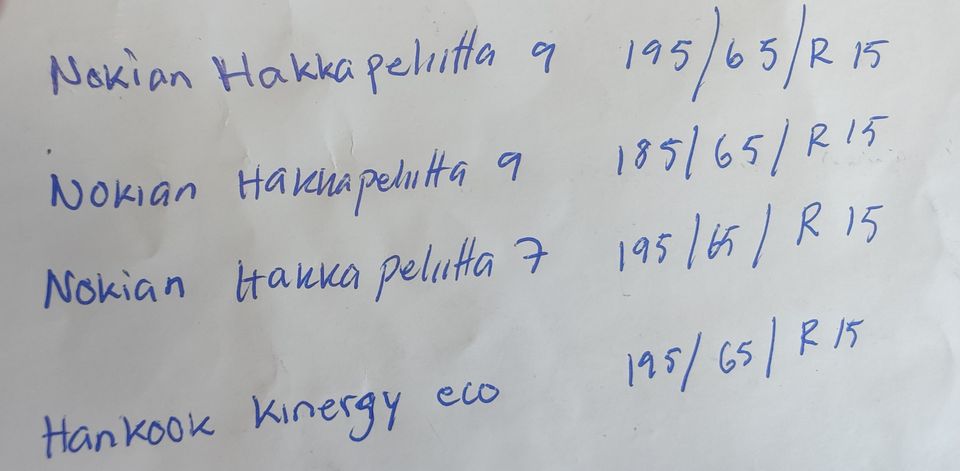 Nokian Hakkapeliitta 9 195/65/R 15
Nokian Hakkapeliitta 9 185/65/R 15
Nokian Hakka peliitta 7 195/65/R 15
Hankook Kinergy eco 195/65/R 15